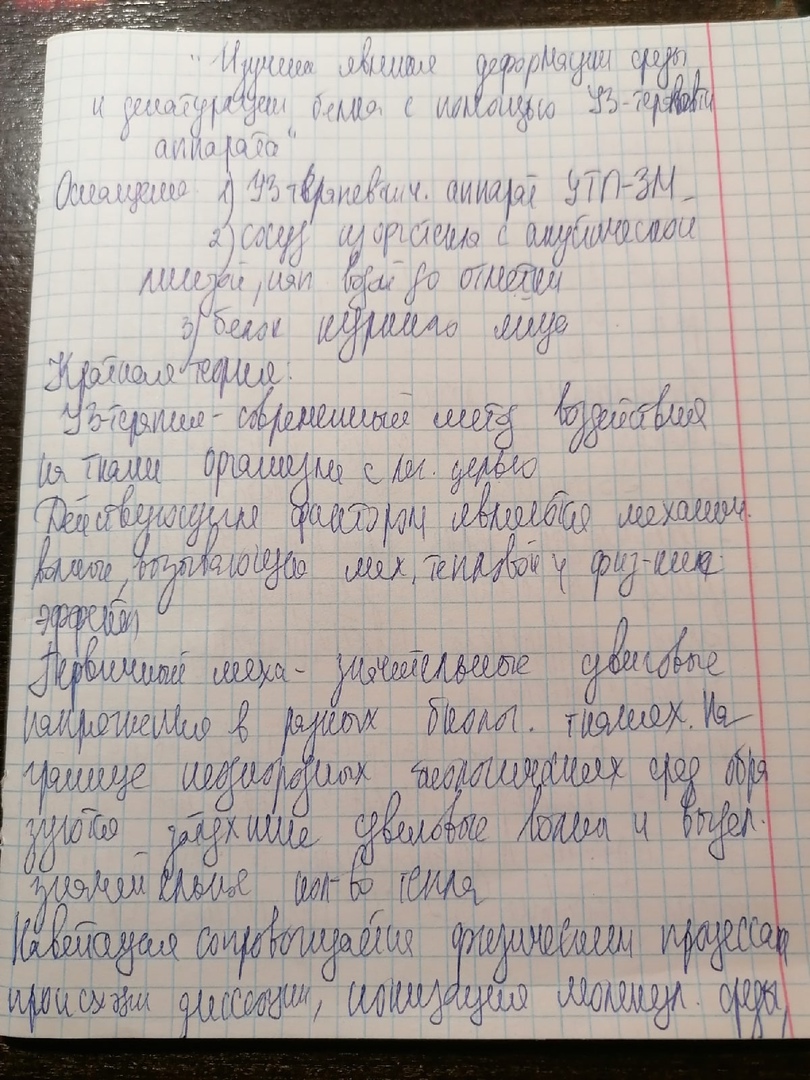 "Изучение явления деформации среды
и денатурации белка с помощью УЗ-терапевти
аппарата"
Оснащение 1) УЗ-терапевтич. аппарат УТП-3М
2) сосуд из оргстекла с акустической
линзой, нап водой до отметки
3) белок куриного яйца
Краткая теория:
УЗ-терапия - современный метод воздействия
на ткани организма с леч. целью
Действующим фактором являются механич.
волны, вызывающие мех, тепловой и физ-хим
эффекты
Первичный меха - значительные сдвиговые
напряжения в разных биолог. тканях. На
границе неоднородных биологических сред обра
зуются затухшие сдвиговые волны и выдел.
значительное кол-во тепла
Кавитация сопровождается физическими процессам
происходят диссоции, ионизация молекул. среды,